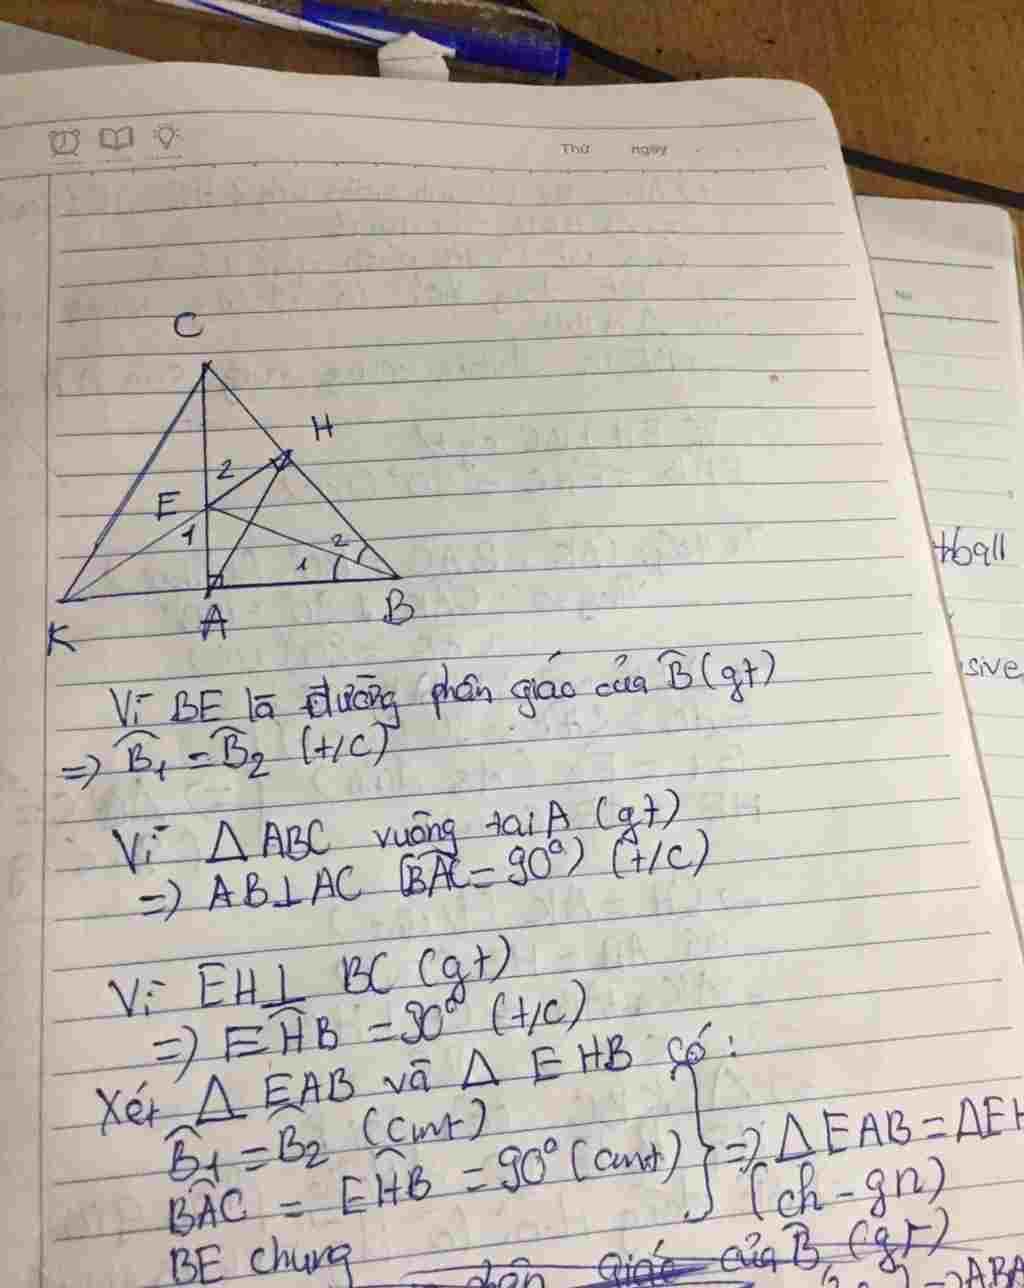 Thứ ngày
No
C
H
2
E
1
2
1
K
A
B
tball
sive
Vì BE là đường phân giác của B̂ (gt)
=> B̂1 = B̂2 (t/c)
Vì △ ABC vuông tại A (gt)
=> AB⊥AC (BÂC = 90°) (t/c)
Vì EH⊥ BC (gt)
=> EĤB = 90° (t/c)
Xét △ EAB và △ EHB có:
B̂1 = B̂2 (cmt)
BÂC = EĤB = 90° (cmt) } => △EAB = △EH
BE chung (ch - gn)
phân giác của B̂ (gt)